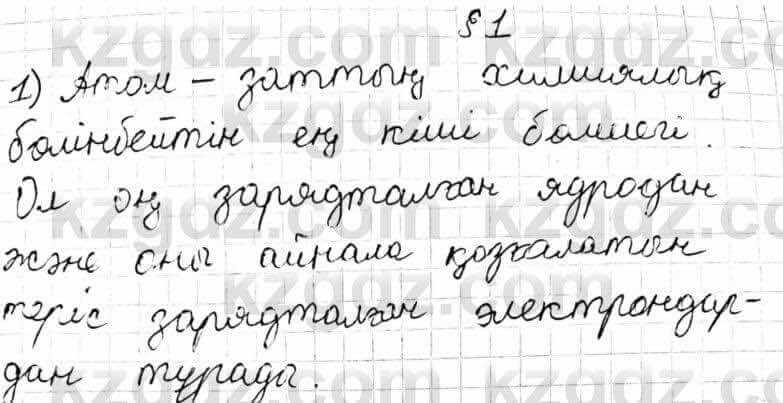 § 1
1) Атом – заттың химиялық
бөлінбейтін ең кіші бөлшегі.
Ол оң зарядталған ядродан
және оны айнала қозғалатын
теріс зарядталған электрондар-
дан тұрады.